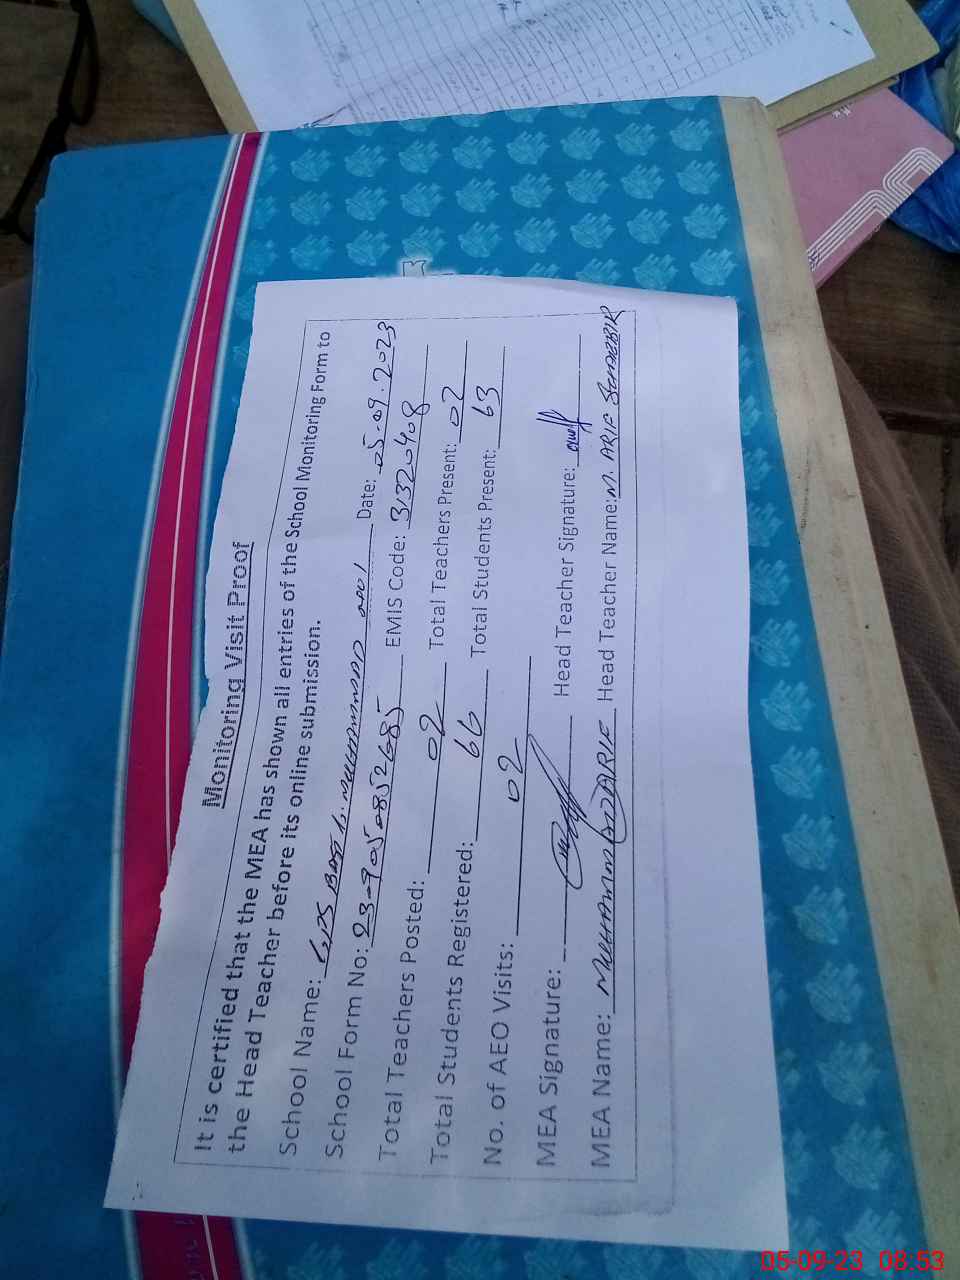 Monitoring Visit Proof
It is certified that the MEA has shown all entries of the School Monitoring Form to
the Head Teacher before its online submission.
School Name: GPS BASTI MUHAMMAD Date: 05.09.2023
School Form No: EMIS Code: 31320408
Total Teachers Posted: 02 Total Teachers Present: 02
Total Students Registered: 66 Total Students Present: 63
No. of AEO Visits: 02
MEA Signature: Head Teacher Signature:
MEA Name: MUHAMMAD ARIF Head Teacher Name: M. ARIF
05-09-23 08:53